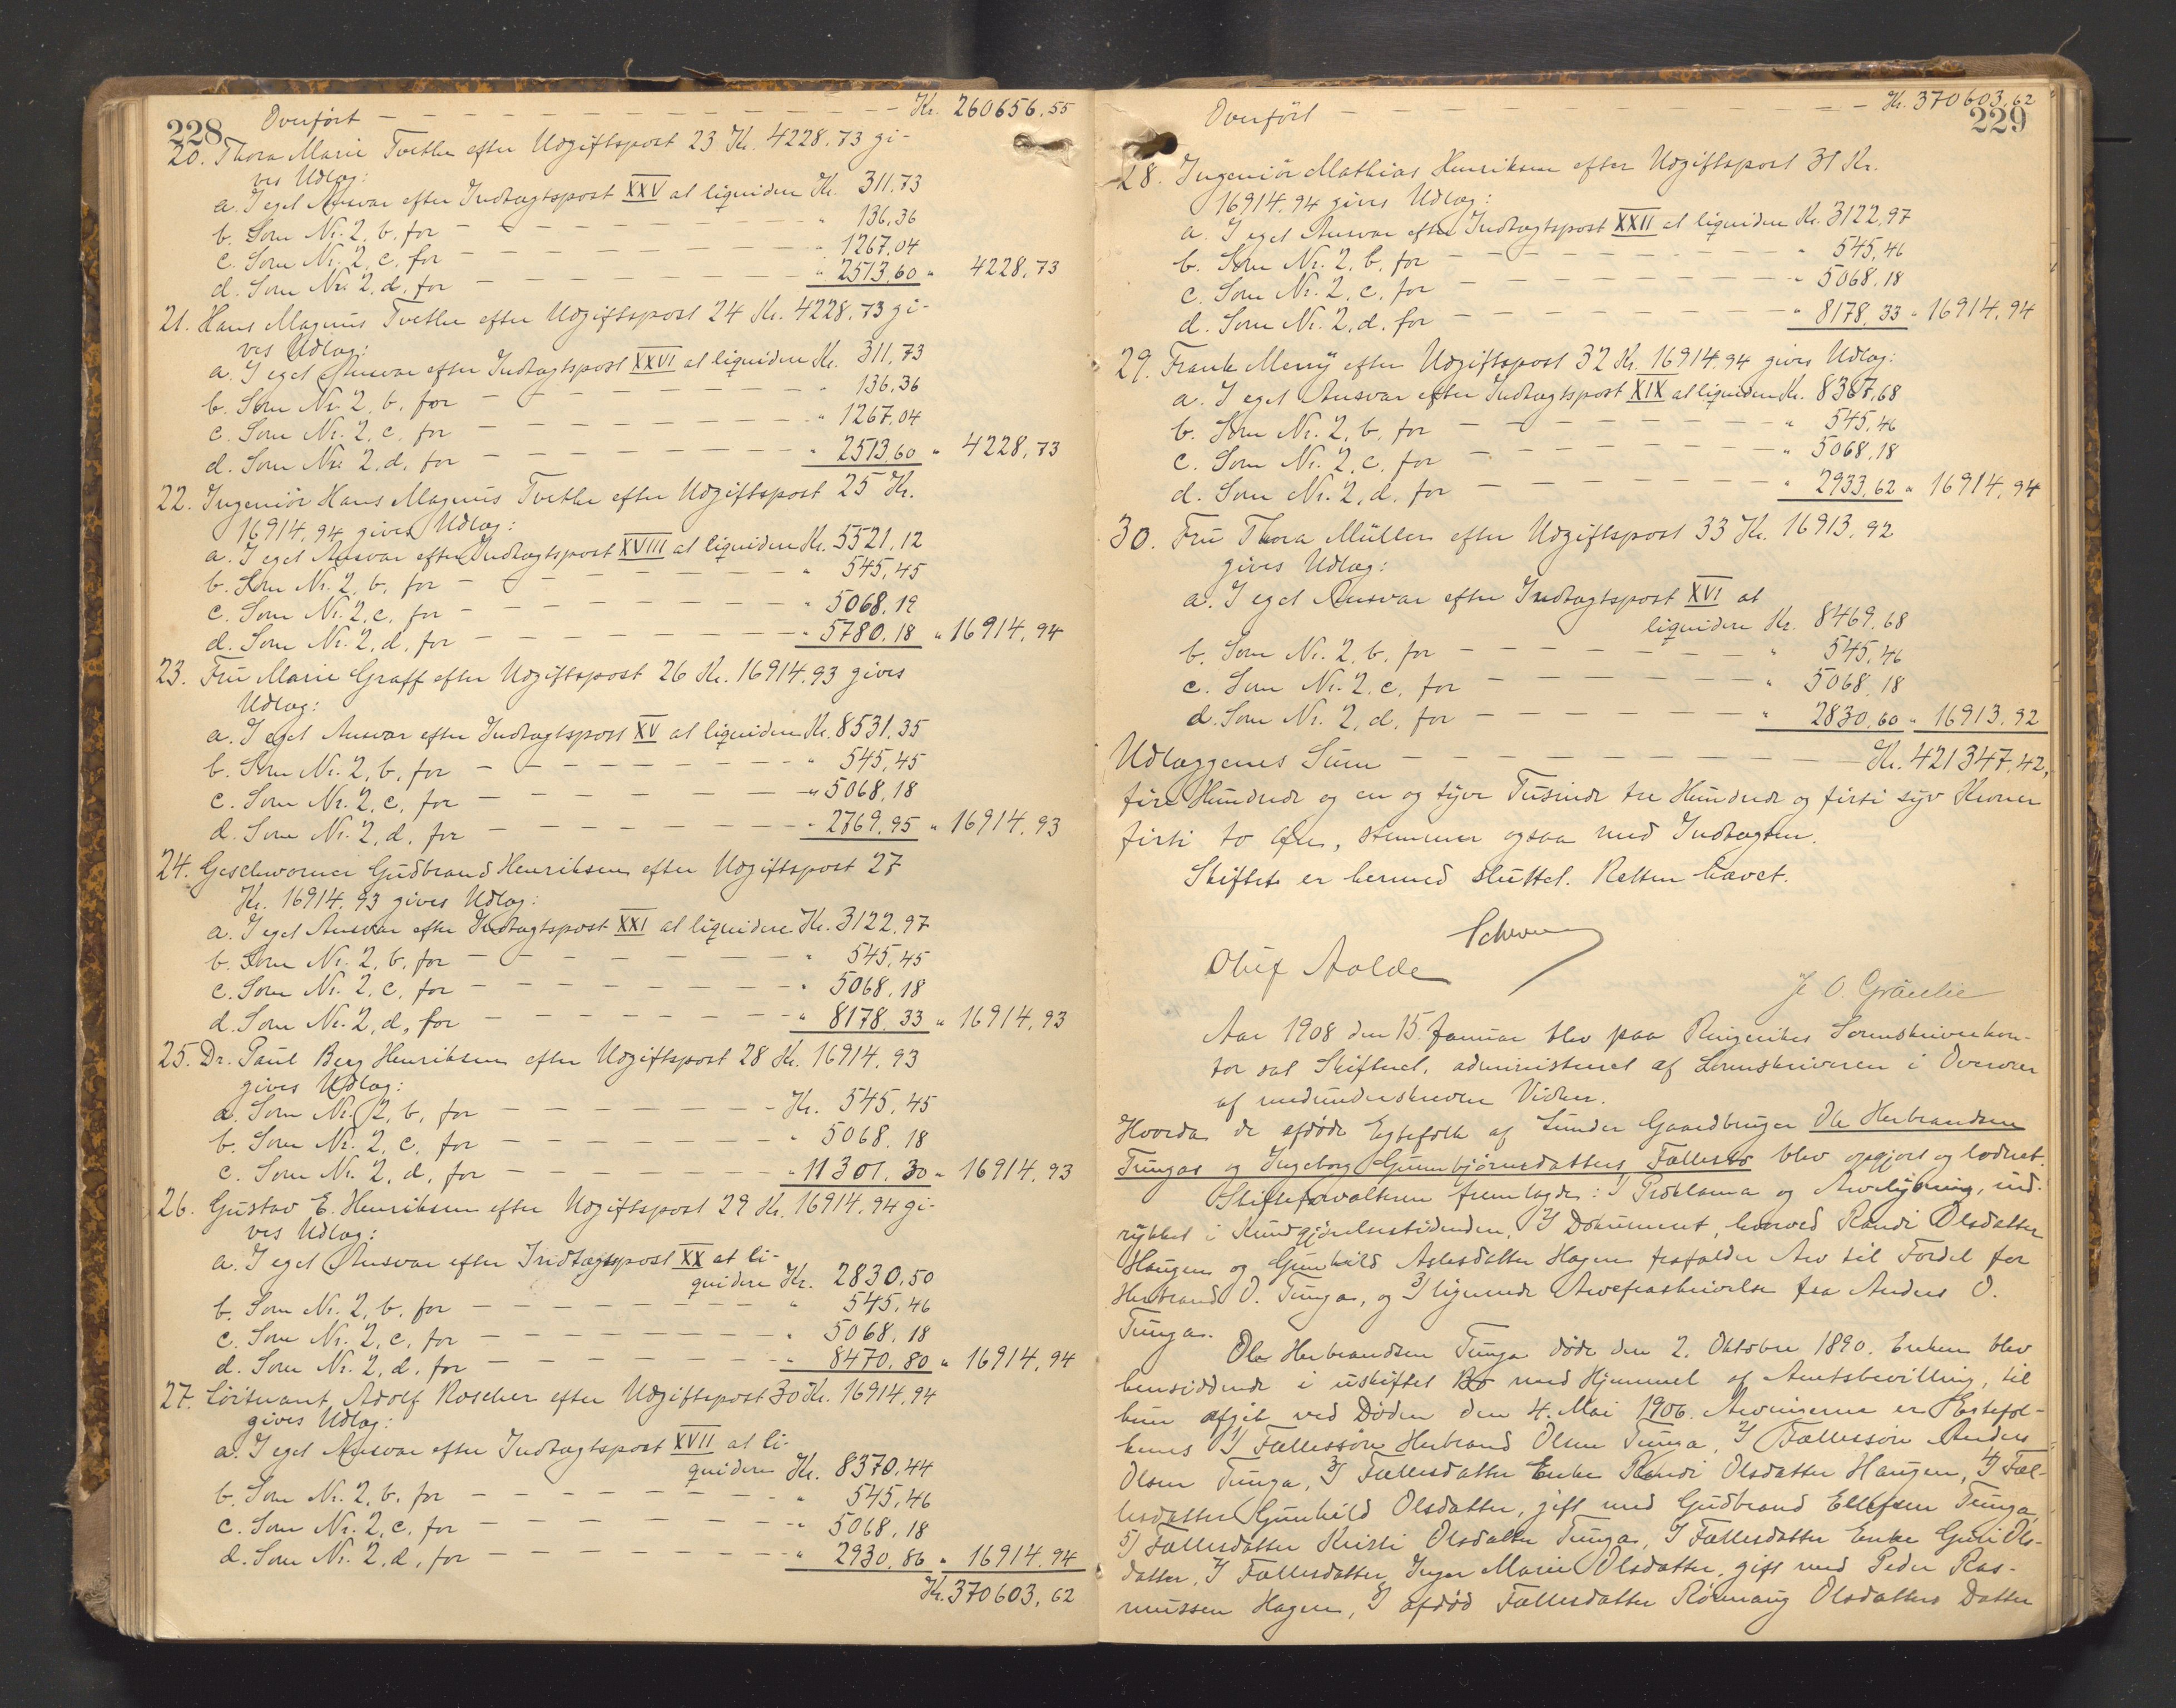 228
Overført — — — — — — — — — Kr. 260656.55
20. Thora Marie Tvethe efter Udgiftspost 23 Kr. 4228.73 gi-
ves Udlæg:
a. I eget Ansvar efter Indtægtspost XXV at liquidere Kr. 311.73
b. Som Nr. 2, b. for — — — — — " 136.36
c. Som Nr. 2, c. for — — — — — " 1267.04
d. Som Nr. 2, d. for — — — — — " 2513.60 " 4228.73
21. Hans Magnus Tvethe efter Udgiftspost 24 Kr. 4228.73 gi-
ves Udlæg:
a. I eget Ansvar efter Indtægtspost XXVI at liquidere Kr. 311.73
b. Som Nr. 2, b. for — — — — — " 136.36
c. Som Nr. 2, c. for — — — — — " 1267.04
d. Som Nr. 2, d. for — — — — — " 2513.60 " 4228.73
22. Ingeniør Hans Magnus Tvethe efter Udgiftspost 25 Kr.
16914.94 gives Udlæg:
a. I eget Ansvar efter Indtægtspost XVIII at liquidere Kr. 5521.12
b. Som Nr. 2, b. for — — — — — " 545.45
c. Som Nr. 2, c. for — — — — — " 5068.19
d. Som Nr. 2, d. for — — — — — " 5780.18 " 16914.94
23. Fru Marie Graff efter Udgiftspost 26 Kr. 16914.93 gives
Udlæg:
a. I eget Ansvar efter Indtægtspost XV at liquidere Kr. 8531.35
b. Som Nr. 2, b. for — — — — — " 545.45
c. Som Nr. 2, c. for — — — — — " 5068.18
d. Som Nr. 2, d. for — — — — — " 2769.95 " 16914.93
24. Geschworner Gudbrand Henriksen efter Udgiftspost 27
Kr. 16914.93 gives Udlæg:
a. I eget Ansvar efter Indtægtspost XXI at liquidere Kr. 3122.97
b. Som Nr. 2, b. for — — — — — " 545.45
c. Som Nr. 2, c. for — — — — — " 5068.18
d. Som Nr. 2, d. for — — — — — " 8178.33 " 16914.93
25. Dr. Paul Berg Henriksen efter Udgiftspost 28 Kr. 16914.93
gives Udlæg:
a. Som Nr. 2, b. for — — — — — Kr. 545.45
b. Som Nr. 2, c. for — — — — — " 5068.18
c. Som Nr. 2, d. for — — — — — " 11301.30 " 16914.93
26. Gustav E. Henriksen efter Udgiftspost 29 Kr. 16914.94 gi-
ves Udlæg:
a. I eget Ansvar efter Indtægtspost XX at li-
quidere Kr. 2830.50
b. Som Nr. 2, b. for — — — — — " 545.46
c. Som Nr. 2, c. for — — — — — " 5068.18
d. Som Nr. 2, d. for — — — — — " 8470.80 " 16914.94
27. Løitnant Adolf Roscher efter Udgiftspost 30 Kr. 16914.94
gives Udlæg:
a. I eget Ansvar efter Indtægtspost XVII at li-
quidere Kr. 8370.44
b. Som Nr. 2, b. for — — — — — " 545.46
c. Som Nr. 2, c. for — — — — — " 5068.18
d. Som Nr. 2, d. for — — — — — " 2930.86 " 16914.94
Kr. 370603.62
229
Overført — — — — — — — — — Kr. 370603.62
28. Ingeniør Mathias Henriksen efter Udgiftspost 31 Kr.
16914.94 gives Udlæg:
a. I eget Ansvar efter Indtægtspost XXII at liquidere Kr. 3122.97
b. Som Nr. 2, b. for — — — — — " 545.46
c. Som Nr. 2, c. for — — — — — " 5068.18
d. Som Nr. 2, d. for — — — — — " 8178.33 " 16914.94
29. Frank Merry efter Udgiftspost 32 Kr. 16914.94 gives Udlæg:
a. I eget Ansvar efter Indtægtspost XIX at liquidere Kr. 8367.68
b. Som Nr. 2, b. for — — — — — " 545.46
c. Som Nr. 2, c. for — — — — — " 5068.18
d. Som Nr. 2, d. for — — — — — " 2933.62 " 16914.94
30. Fru Thora Müller efter Udgiftspost 33 Kr. 16913.92
gives Udlæg:
a. I eget Ansvar efter Indtægtspost XVI at
liquidere Kr. 8469.68
b. Som Nr. 2, b. for — — — — — " 545.46
c. Som Nr. 2, c. for — — — — — " 5068.18
d. Som Nr. 2, d. for — — — — — " 2830.60 " 16913.92
Udlæggenes Sum — — — — — — — Kr. 421347.42,
fire Hundrede og en og tyve Tusinde tre Hundrede og firti syv Kroner
firti to Øre, stemmer ogsaa med Indtægten.
Skiftet er hermed sluttet. Retten hævet.
Oluf Aalde
Aar 1908 den 15. Januar blev paa Ringerikes Sorenskriverkon-
tor sat Skifteret, administreret af Sorenskriveren i Overvær
af medunderskrevne Vidner.
Hvorda de afdøde Egtefolk af Gaardbruger Ole Herbrandsen
Tungas og Ingeborg Gunbjørnsdatters Fællesbo blev opgjort og lodnet.
Skifteforvalteren fremlagde: 1) Proklama og Arvelysning, ind-
rykket i Kundgjørelsestidenden, 2) Dokument, hvorved Randi Olsdatter
Haugen og Gunhild Aslesdatter Hagen frafalder Arv til Fordel for
Herbrand O. Tunga, og 3) lignende Arvefraskrivelse fra Anders O.
Tunga.
Ole Herbrandsen Tunga døde den 2. Oktober 1890. Enken blev
hensiddende i uskiftet Bo med Hjemmel af Amtsbevilling, til
hun afgik ved Døden den 4. Mai 1906. Arvingerne er Egtefol-
kenes 1) Fællessøn Herbrand Olsen Tunga, 2) Fællessøn Anders
Olsen Tunga, 3) Fællesdatter Enke Randi Olsdatter Haugen, 4) Fæl-
lesdatter Gunhild Olsdatter, gift med Gudbrand Ellefsen Tunga,
5) Fællesdatter Kristi Olsdatter Tunga, 6) Fællesdatter Enke Guri Ols-
datter, 7) Fællesdatter Inger Marie Olsdatter, gift med Peder Ras-
mussen Hagen, 8) afdød Fællesdatter Rønnaug Olsdatters Datter